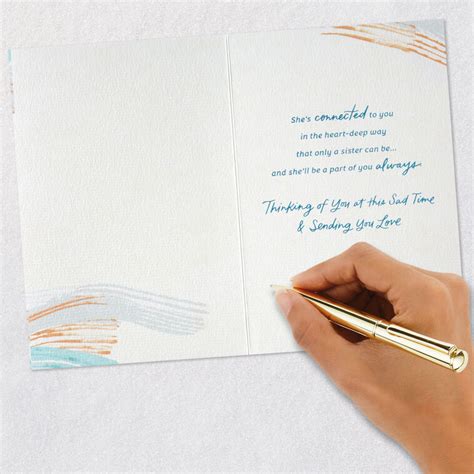 She's connected to you
in the heart-deep way
that only a sister can be...
and she'll be a part of you always.
Thinking of You at this Sad Time
& Sending You Love